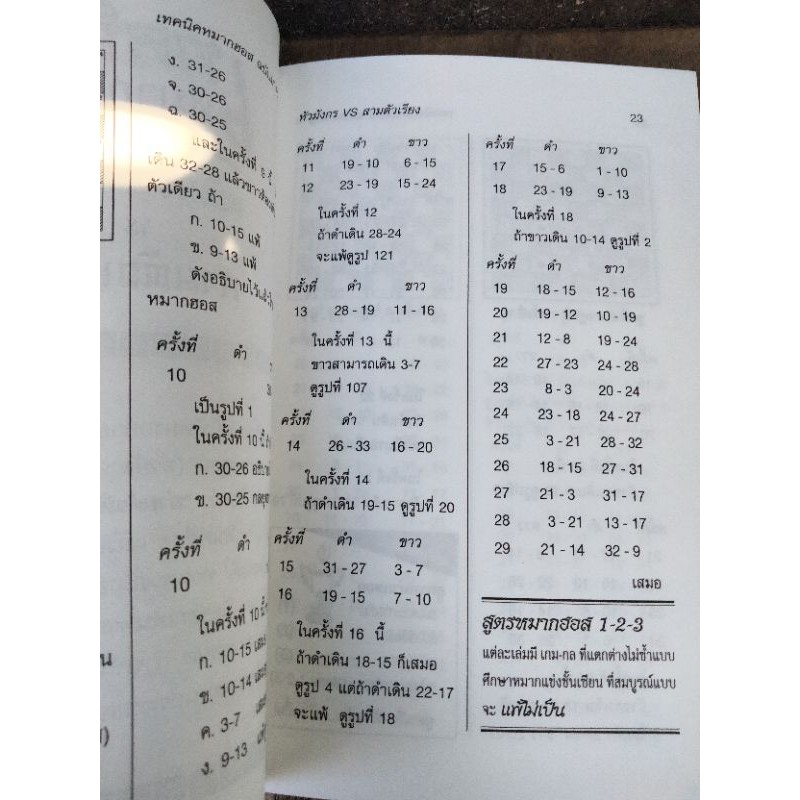 เทคนิคหมากฮอส
ง. 31-26
จ. 30-26
ฉ. 30-25
และในครั้งที่
เดิน 32-28 แล้วขาว
ตัวเดียว ถ้า
ก. 10-15 แพ้
ข. 9-13 แพ้
ดังอธิบายไว้แล้ว
หมากฮอส
ครั้งที่ ดำ
10
เป็นรูปที่ 1
ในครั้งที่ 10 นี้
ก. 30-26
ข. 30-25
ครั้งที่ ดำ
10
ในครั้งที่ 10 นี้
ก. 10-15
ข. 10-14
ค. 3-7
ง. 9-13
หัวมังกร VS สามตัวเรียง 23
ครั้งที่ ดำ ขาว
11 19 - 10 6 - 15
12 23 - 19 15 - 24
ในครั้งที่ 12
ถ้าดำเดิน 28-24
จะแพ้ดูรูป 121
ครั้งที่ ดำ ขาว
13 28 - 19 11 - 16
ในครั้งที่ 13 นี้
ขาวสามารถเดิน 3-7
ดูรูปที่ 107
ครั้งที่ ดำ ขาว
14 26 - 33 16 - 20
ในครั้งที่ 14
ถ้าดำเดิน 19-15 ดูรูปที่ 20
ครั้งที่ ดำ ขาว
15 31 - 27 3 - 7
16 19 - 15 7 - 10
ในครั้งที่ 16 นี้
ถ้าดำเดิน 18-15 ก็เสมอ
ดูรูป 4 แต่ถ้าดำเดิน 22-17
จะแพ้ ดูรูปที่ 18
ครั้งที่ ดำ ขาว
17 15 - 6 1 - 10
18 23 - 19 9 - 13
ในครั้งที่ 18
ถ้าขาวเดิน 10-14 ดูรูปที่ 2
ครั้งที่ ดำ ขาว
19 18 - 15 12 - 16
20 19 - 12 10 - 19
21 12 - 8 19 - 24
22 27 - 23 24 - 28
23 8 - 3 20 - 24
24 23 - 18 24 - 27
25 3 - 21 28 - 32
26 18 - 15 27 - 31
27 21 - 3 31 - 17
28 3 - 21 13 - 17
29 21 - 14 32 - 9
เสมอ
สูตรหมากฮอส 1-2-3
แต่ละเล่มมี เกม-กล ที่แตกต่างไม่ซ้ำแบบ
ศึกษาหมากแข่งชั้นเซียน ที่สมบูรณ์แบบ
จะ แพ้ไม่เป็น